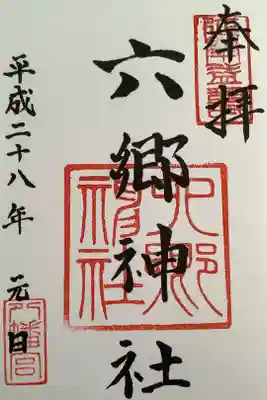 奉拝
六郷神社
平成二十八年 元日